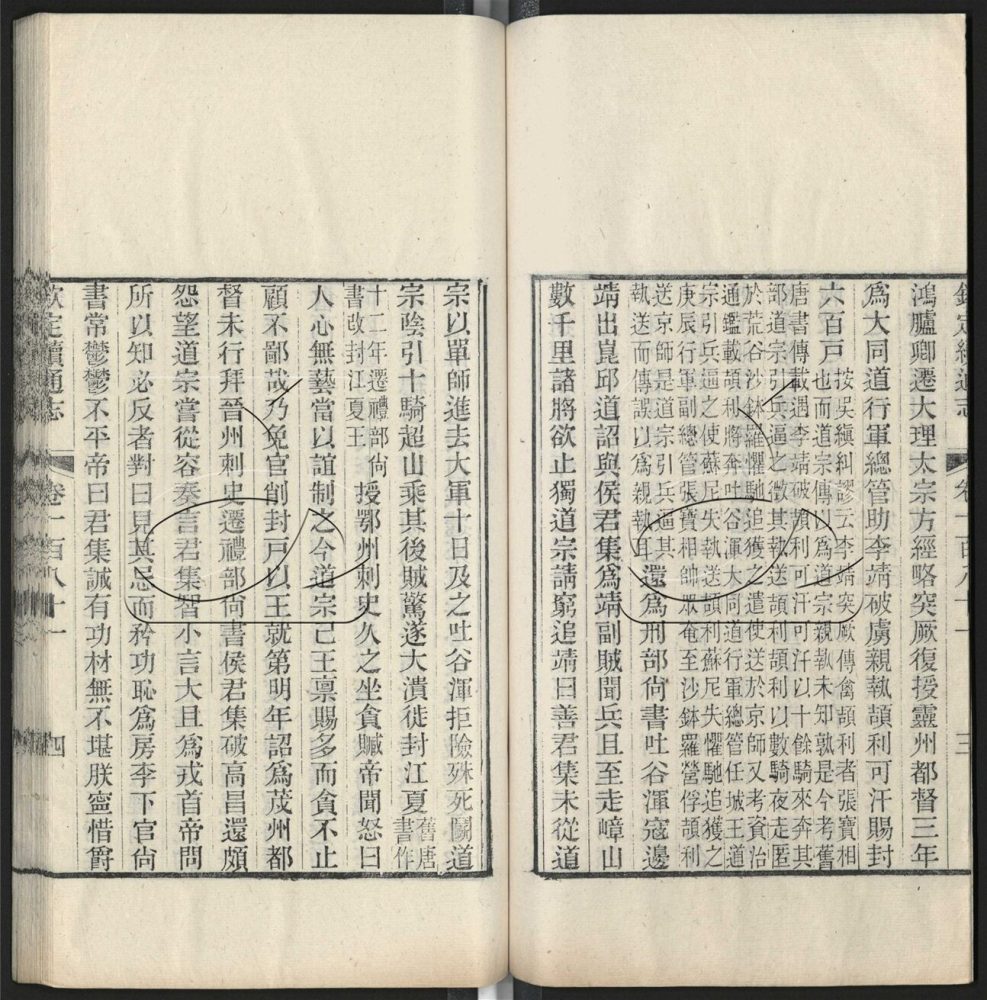 欽定續通志 卷一百八十一 三
鴻臚卿遷大理太宗方經略突厥復授靈州都督三年
爲大同道行軍總管助李靖破虜親執頡利可汗賜封
六百戶
按吳縝糾謬云李靖突厥傳禽頡利者張寶相
也而道宗傳以爲道宗親執未知孰是今考舊
唐書傳載遇李靖破頡利可汗可汗以十餘騎來奔其
部道宗引兵逼之徵其執送頡利頡利以數騎夜走匿
於荒谷沙鉢羅懼馳追獲之遣使送於京師又考資治
通鑑載頡利將奔吐谷渾大同道行軍總管任城王道
宗引兵逼之使蘇尼失執送頡利蘇尼失懼馳追獲之
庚辰行軍副總管張寶相帥眾奄至沙鉢羅營俘頡利
送京師是道宗引兵逼其
執送而傳誤以爲親執耳
還爲刑部尚書吐谷渾寇邊
靖出崑邱道詔與侯君集爲靖副賊聞兵且至走嶂山
數千里諸將欲止獨道宗請窮追靖曰善君集未從道
宗以單師進去大軍十日及之吐谷渾拒險殊死鬬道
宗陰引十騎超山乘其後賊驚遂大潰徙封江夏
舊唐
書作
十二年遷禮部尚
書改封江夏王
授鄂州刺史久之坐貪贓帝聞怒曰
人心無藝當以誼制之今道宗已王稟賜多而貪不止
顧不鄙哉乃免官削封戶以王就第明年詔爲茂州都
督未行拜晉州刺史遷禮部尚書侯君集破高昌還頗
怨望道宗嘗從容奏言君集智小言大且爲戎首帝問
所以知必反者對曰見其忌而矜功恥爲房李下官尚
書常鬱鬱不平帝曰君集誠有功材無不堪朕寧惜爵
欽定續通志 卷一百八十一 四